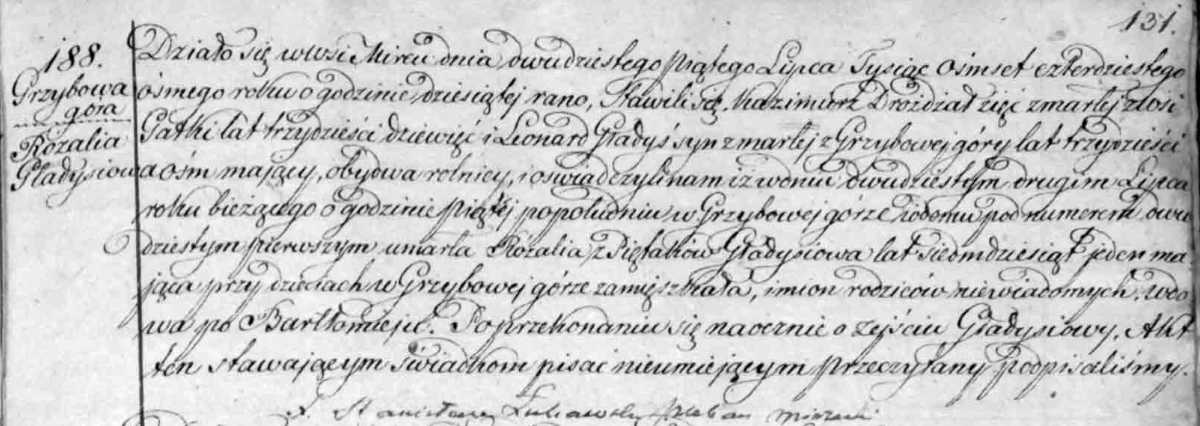 131.
188.
Grzybowa
góra
Rozalia
Gładysiowa
Działo się w wsi Mircu dnia dwudziestego piątego Lipca Tysiąc ośmset czterdziestego
ósmego roku o godzinie dziesiątej rano, Stawili się, Kazimirz Drożdżał zięć zmarłej z Osi
Gatki lat trzydzieści dziewięć i Leonard Gładyś syn zmarłej z Grzybowej góry lat trzydzieści
ośm mający, obydwa rolnicy, i oświadczyli nam iż w dniu dwudziestym drugim Lipca
roku bieżącego o godzinie piątej popołudniu w Grzybowej górze z domu pod numerem dwu
dziestym pierwszym umarła Rozalia z Piętaków Gładysiowa lat siedmdziesiąt jeden ma
jąca przy dzieciach w Grzybowej górze zamięszkała, imion rodziców niewiadomych, wdo
wa po Bartłomieju. Po przekonaniu się naocznie o zejściu Gładysiowy. Akt
ten stawającym świadkom pisać nieumiejącym przeczytany podpisaliśmy.
X. Stanisław Pleban mirzecki